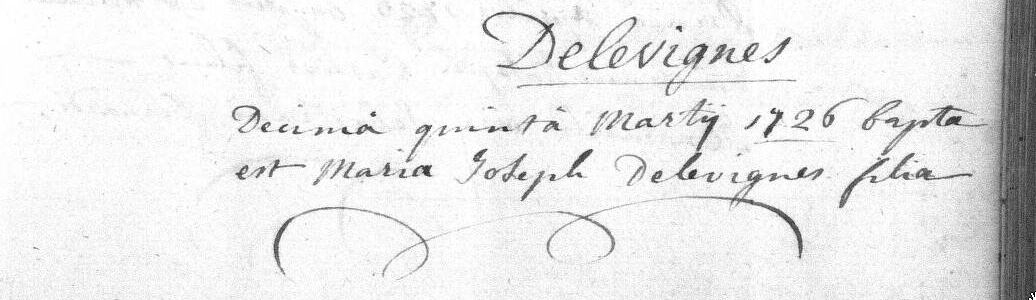 Delevignes
Decimâ quintâ Martij 1726 bapta
est Maria Joseph Delevignes filia